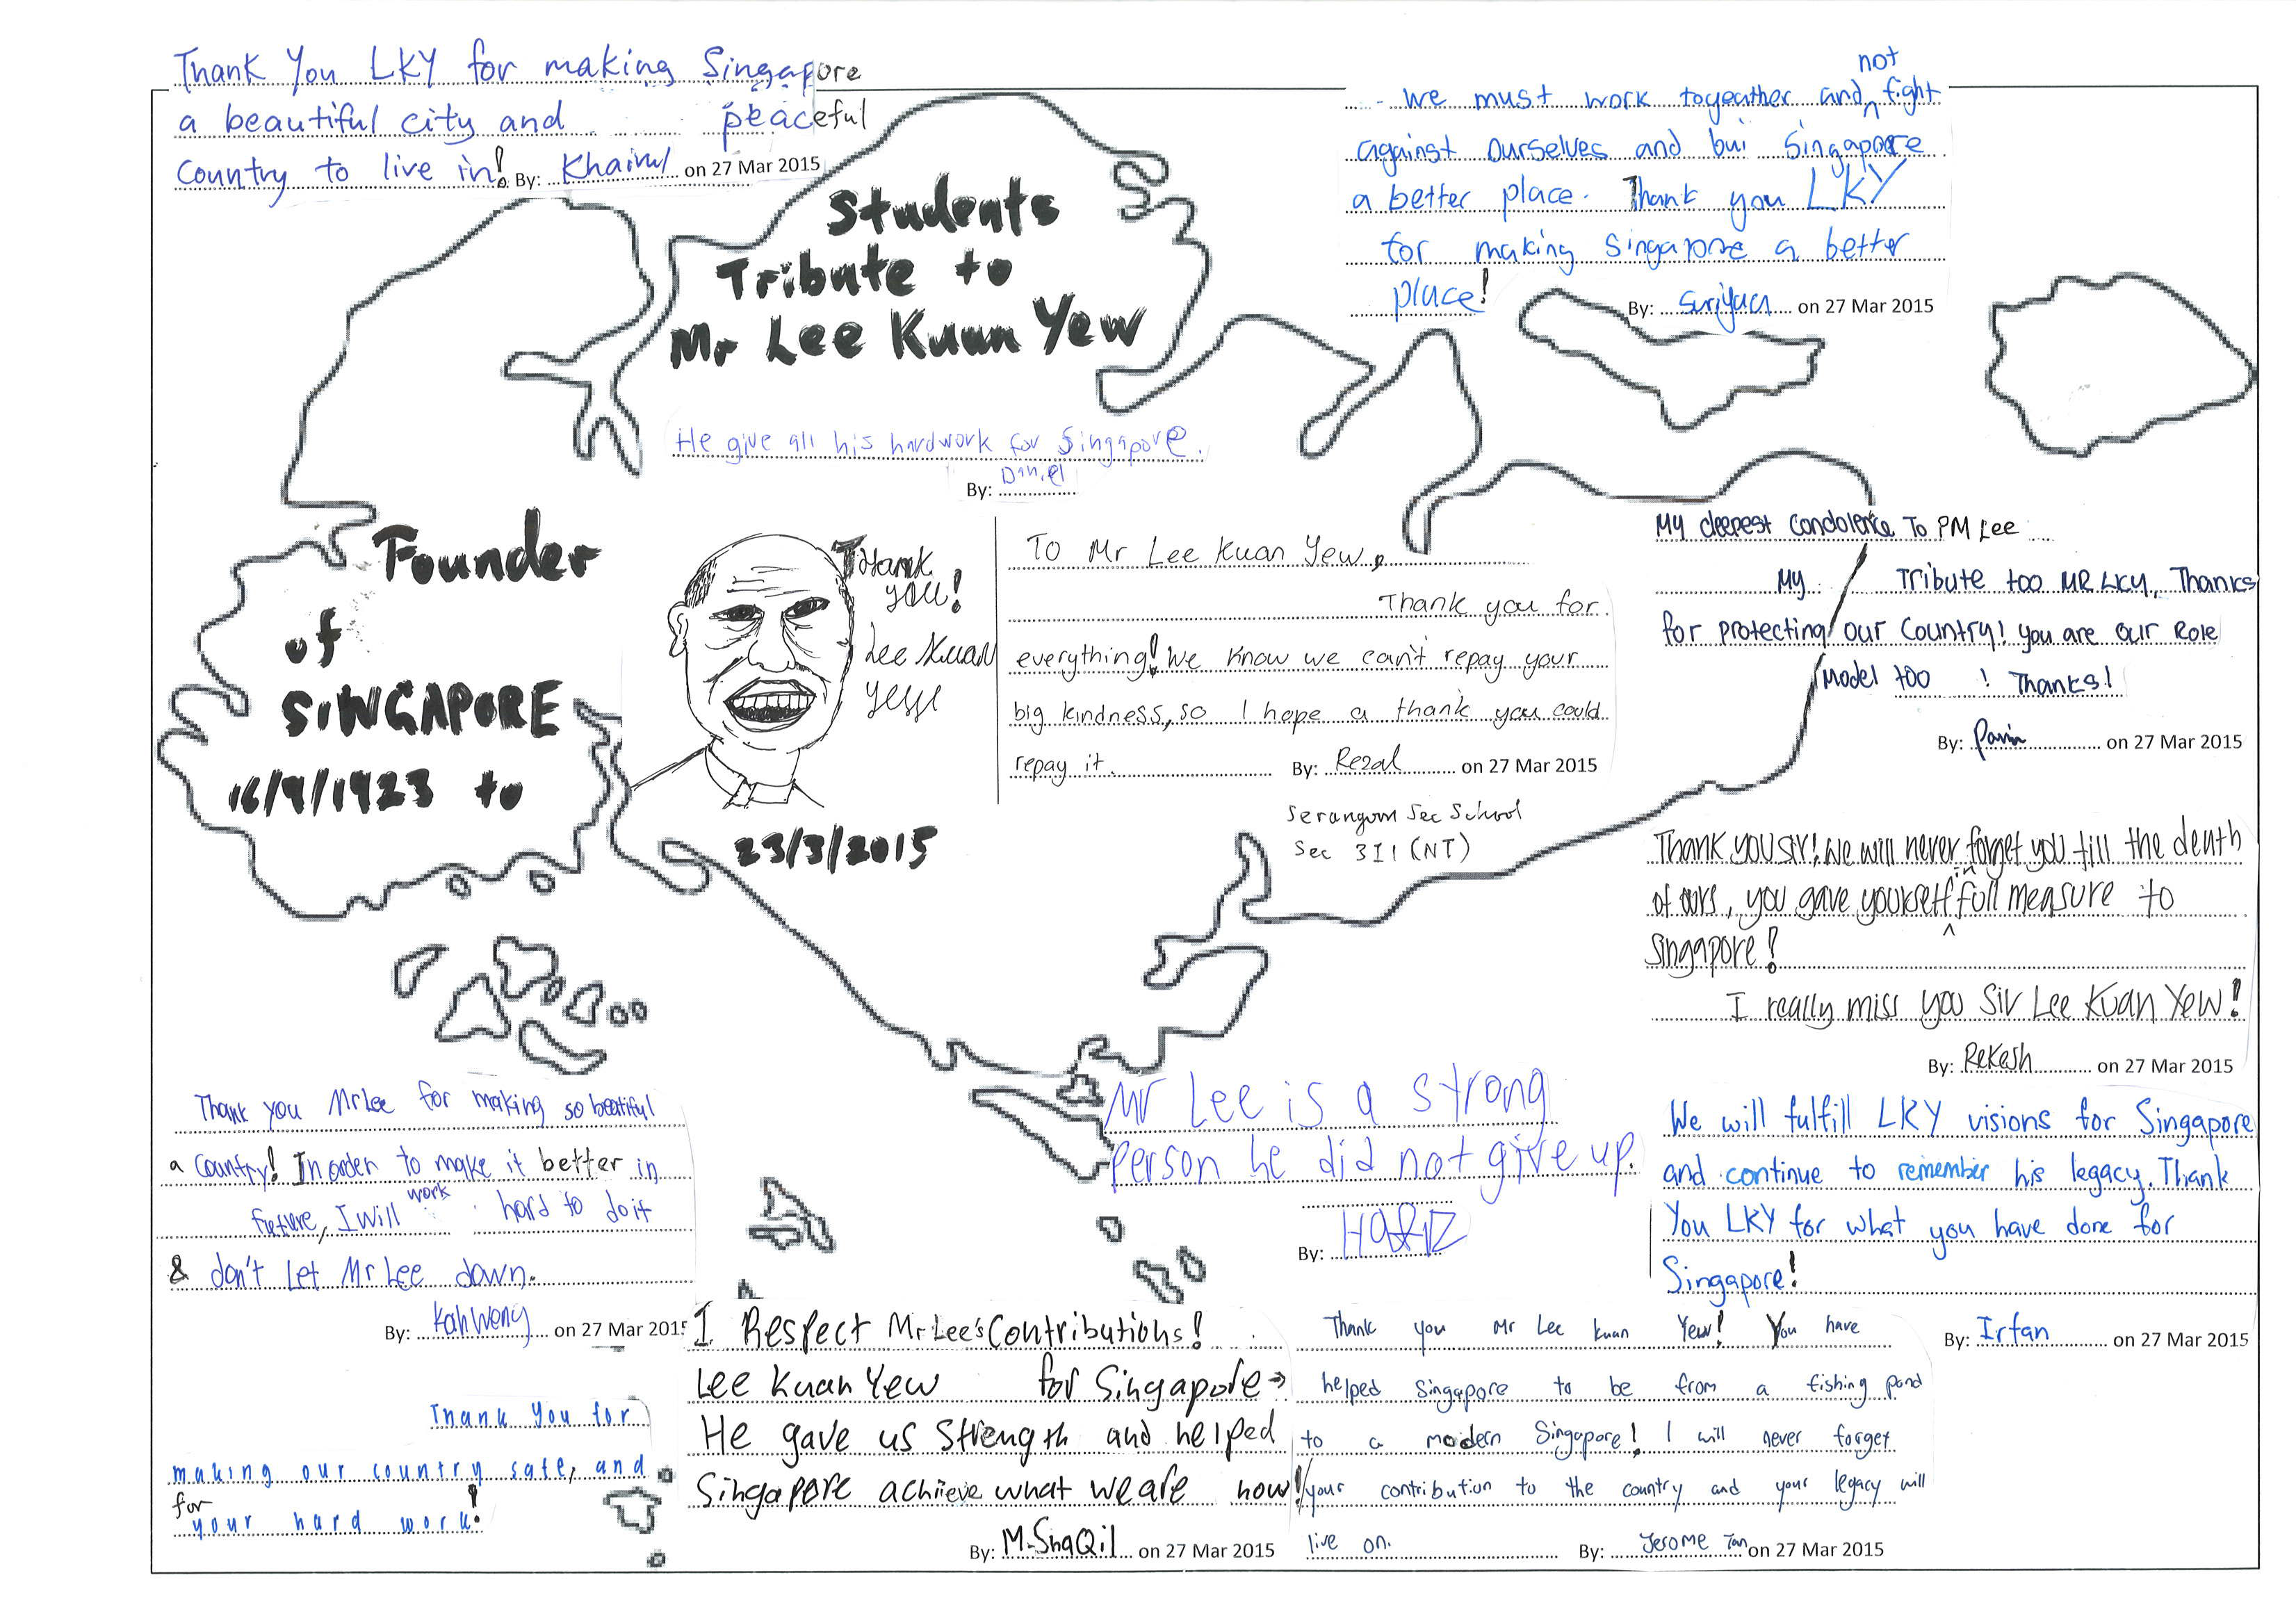 Thank You LKY for making Singapore
a beautiful city and peaceful
Country to live in! By: Khairul on 27 Mar 2015
not
We must work togeather and ^ fight
against Ourselves and bui Singapore
a better place. Thank you LKY
for making Singapore a better
place! By: Suriyaa on 27 Mar 2015
Students
Tribute to
Mr Lee Kuan Yew
He give all his hardwork for Singapore.
By: Daniel
Founder
of
SINGAPORE
16/9/1923 to
23/3/2015
Thank
you!
Lee Kuan
Yew
To Mr Lee Kuan Yew,
Thank you for
everything! We know we can't repay your
big kindness, so I hope a thank you could
repay it. By: Rezal on 27 Mar 2015
Serangoon Sec School
Sec 3I1 (NT)
My deepest Condolence To PM Lee
My Tribute too MR LKY, Thanks
for protecting our Country! You are our Role
Model too ! Thanks!
By: Pavin on 27 Mar 2015
Thank you sir! We will never forget you till the death
in
of ours, you gave yourself ^ full measure to
Singapore!
I really miss you Sir Lee Kuan Yew!
By: Rekesh on 27 Mar 2015
Thank you Mr Lee for making so beatiful
a Country! In order to make it better in
work
future, I will hard to do it
& don't let Mr Lee down.
By: Kah Weng on 27 Mar 2015
Mr Lee is a strong
person he did not give up.
By: Hafiz
We will fulfill LKY visions for Singapore
and continue to remember his legacy. Thank
You LKY for what you have done for
Singapore!
By: Irfan on 27 Mar 2015
Thank You for
making our country safe, and
for
your hard work!
I Respect Mr Lee's Contributions!
Lee Kuan Yew for Singapore →
He gave us strength and helped
Singapore achieve what we are now!
By: M. ShaQil on 27 Mar 2015
Thank you Mr Lee Kuan Yew! You have
helped Singapore to be from a fishing pond
to a modern Singapore! I will never forget
your contribution to the country and your legacy will
live on. By: Jerome Tan on 27 Mar 2015